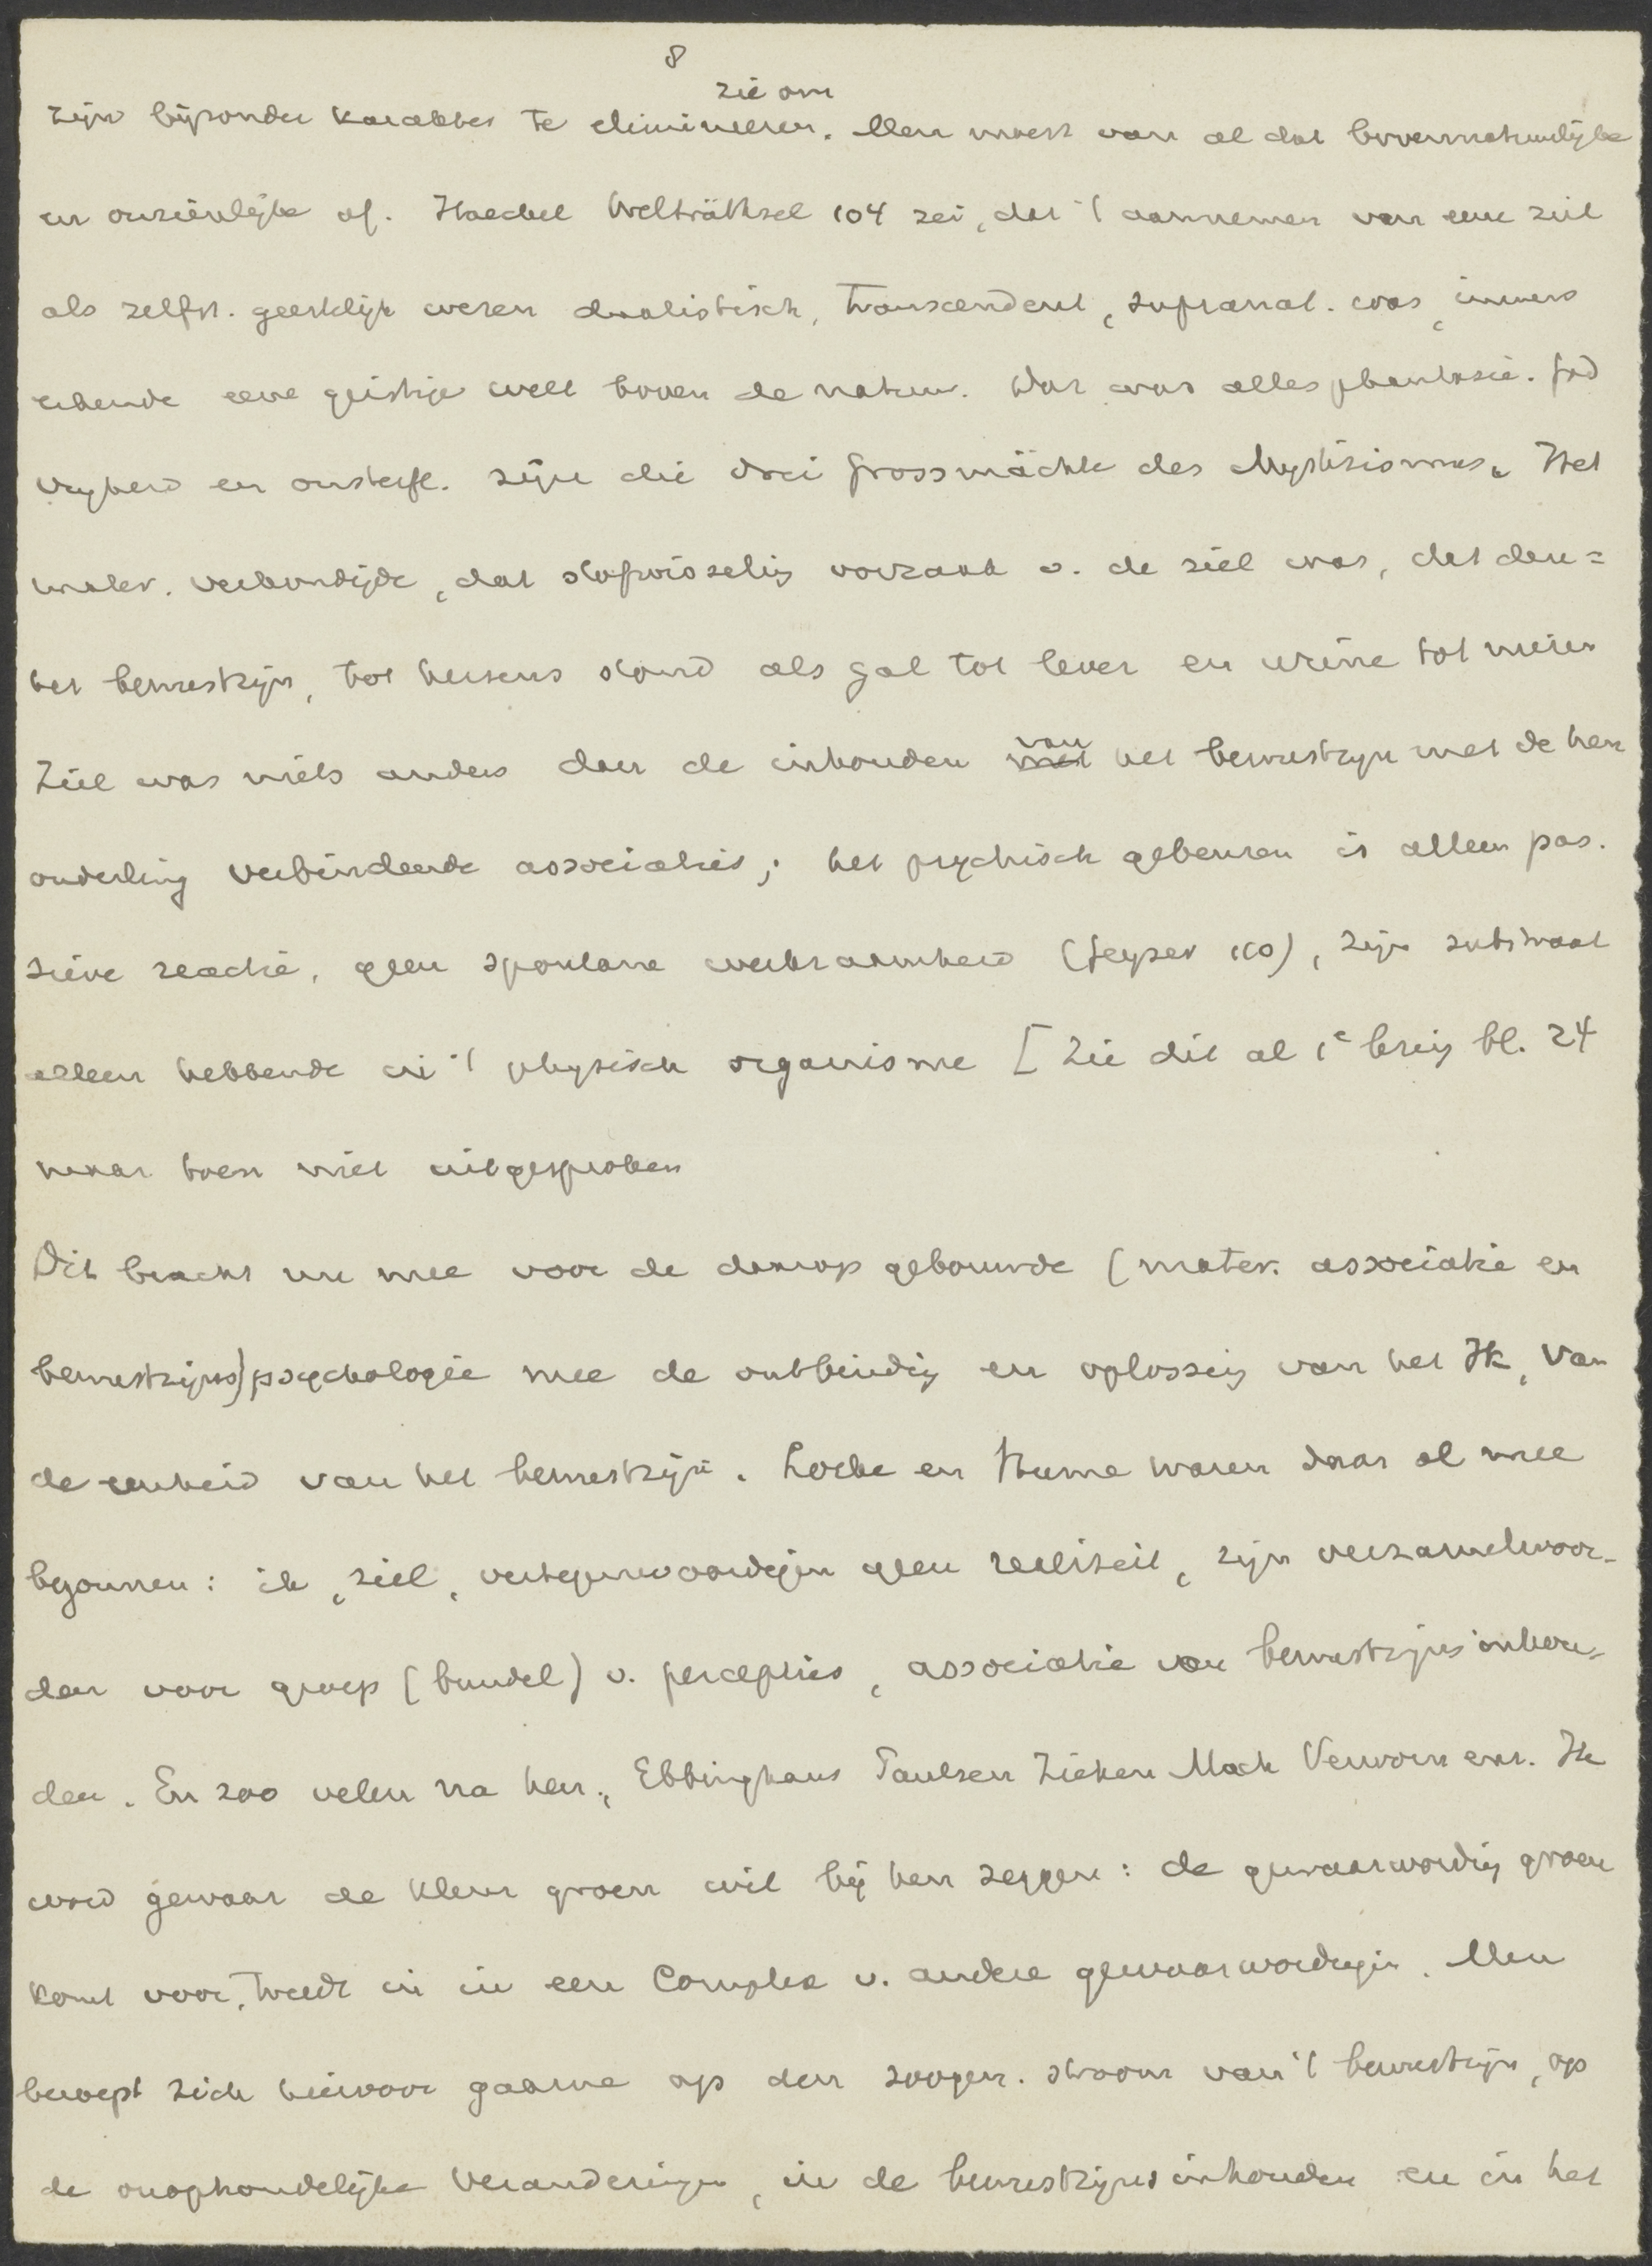 8
zie om
zijn bijzonder karakter te elimineeren. Men moest van al dat bovennatuurlijke
en onzienlijke af. Haeckel Welträthsel 104 zei, dat 't aannemen van eene ziel
als zelfst. geestelijk wezen dualistisch, transcendent, supranat. was, immers
eene geistige welt boven de natuur. Dat was alles phantasie. God
vrijheid en onsterfl. zijn die drei Grossmächte des Mystizismus. Het
mater. verkondigde, dat stofwisseling oorzaak v. de ziel was, dat den=
ken bewustzijn, tot hersens stond als gal tot lever en urine tot nieren
Ziel was niets anders dan de inhouden van het bewustzijn met de hen
onderling verbindende associaties; het psychisch gebeuren is alleen pas.
sieve reactie, geen spontane werkzaamheid (Geyser 110), zijn substraat
alleen hebbende in 't physisch organisme [Zie dit al 1e bl. 24
maar toen niet uitgesproken
Dit bracht nu mee voor de daarop gebouwde (mater. associatie en
bewustzijns)psychologie mee de ontbinding en oplossing van het Ik, van
de eenheid van het bewustzijn. Locke en Hume waren daar al mee
begonnen: ik, ziel, vertegenwoordigen geen realiteit, zijn verzamelwoor-
den voor groep (bundel) v. percepties, associatie van bewustzijnsinhou-
den. En zoo velen na hen, Ebbinghaus Paulsen Ziehen Mach Verworn enz. Ik
word gewaar de kleur groen wil bij hen zeggen: de gewaarwording groen
komt voor, treedt in in een complex v. andere gewaarwordingen. Men
beroept zich hiervoor gaarne op den zoogen. stroom van 't bewustzijn, op
de onophoudelijke veranderingen, in de bewustzijnsinhouden en in het